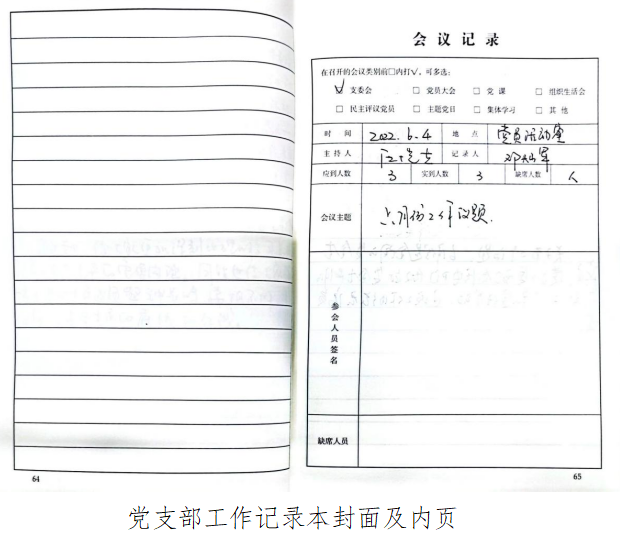 会议记录
在召开的会议类别前□内打√，可多选：
☑ 支委会 □ 党员大会 □ 党 课 □ 组织生活会
□ 民主评议党员 □ 主题党日 □ 集体学习 □ 其 他
时 间 2022.6.4 地 点 党员活动室
主 持 人 记 录 人
应到人数 3 实到人数 3 缺席人数
会议主题 六月份工作议题.
参会人员签名
缺席人员
64
65
党支部工作记录本封面及内页